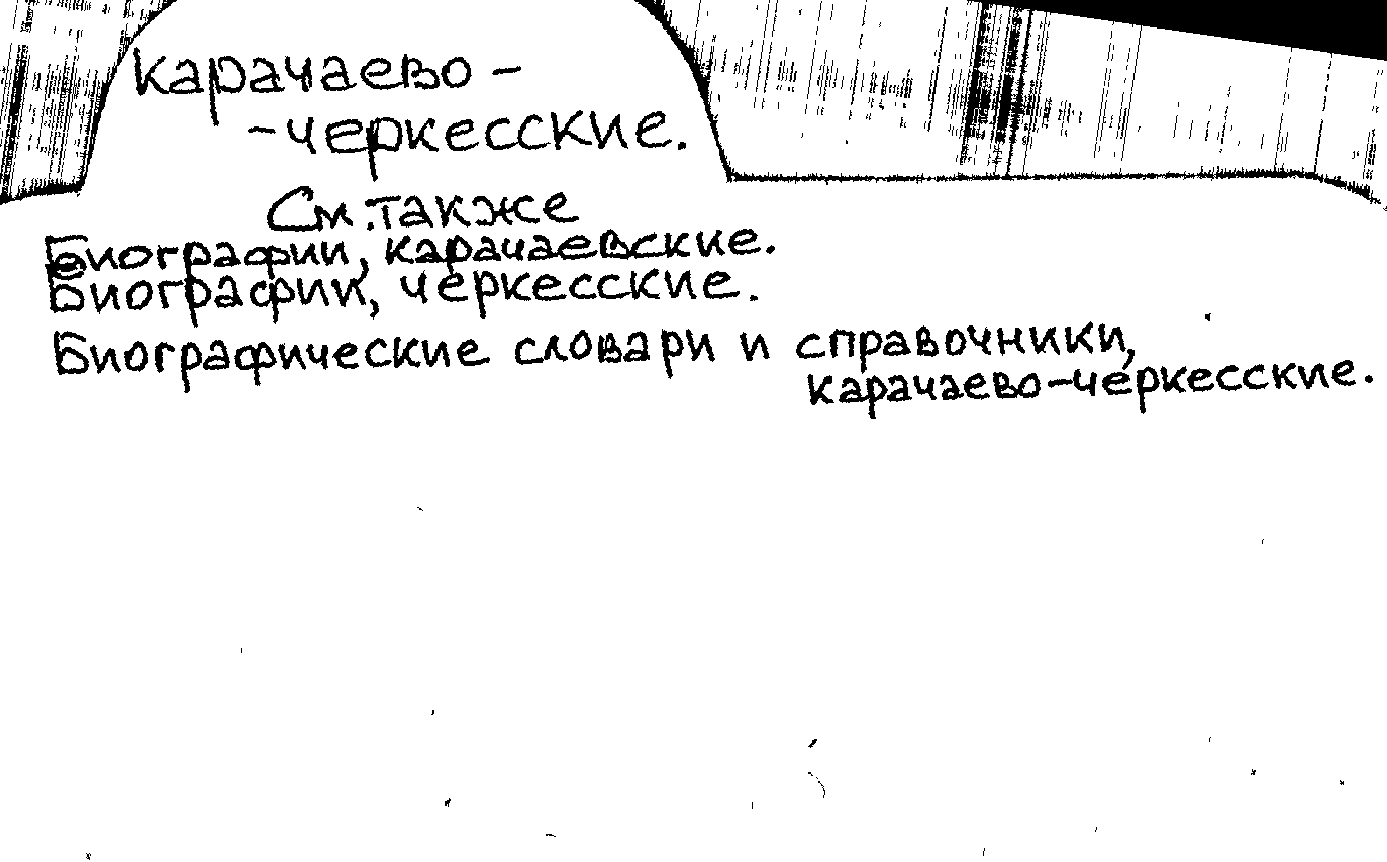 карачаево -
-черкесские.
См. также
Биографии, карачаевские.
Биографии, черкесские.
Биографические словари и справочники,
карачаево-черкесские.